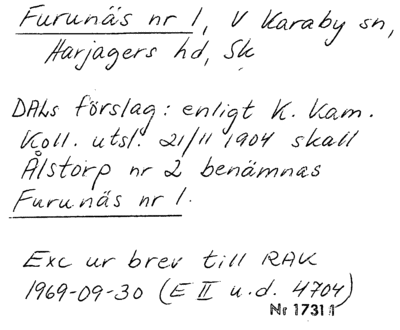 Furunäs nr 1, V Karaby sn,
Harjagers hd, Sk
DALs förslag: enligt K. Kam.
Koll. utsl. 21/11 1904 skall
Ålstorp nr 2 benämnas
Furunäs nr 1.
Exc ur brev till RAK
1969-09-30 (E II u.d. 4704)
Nr 1731 1